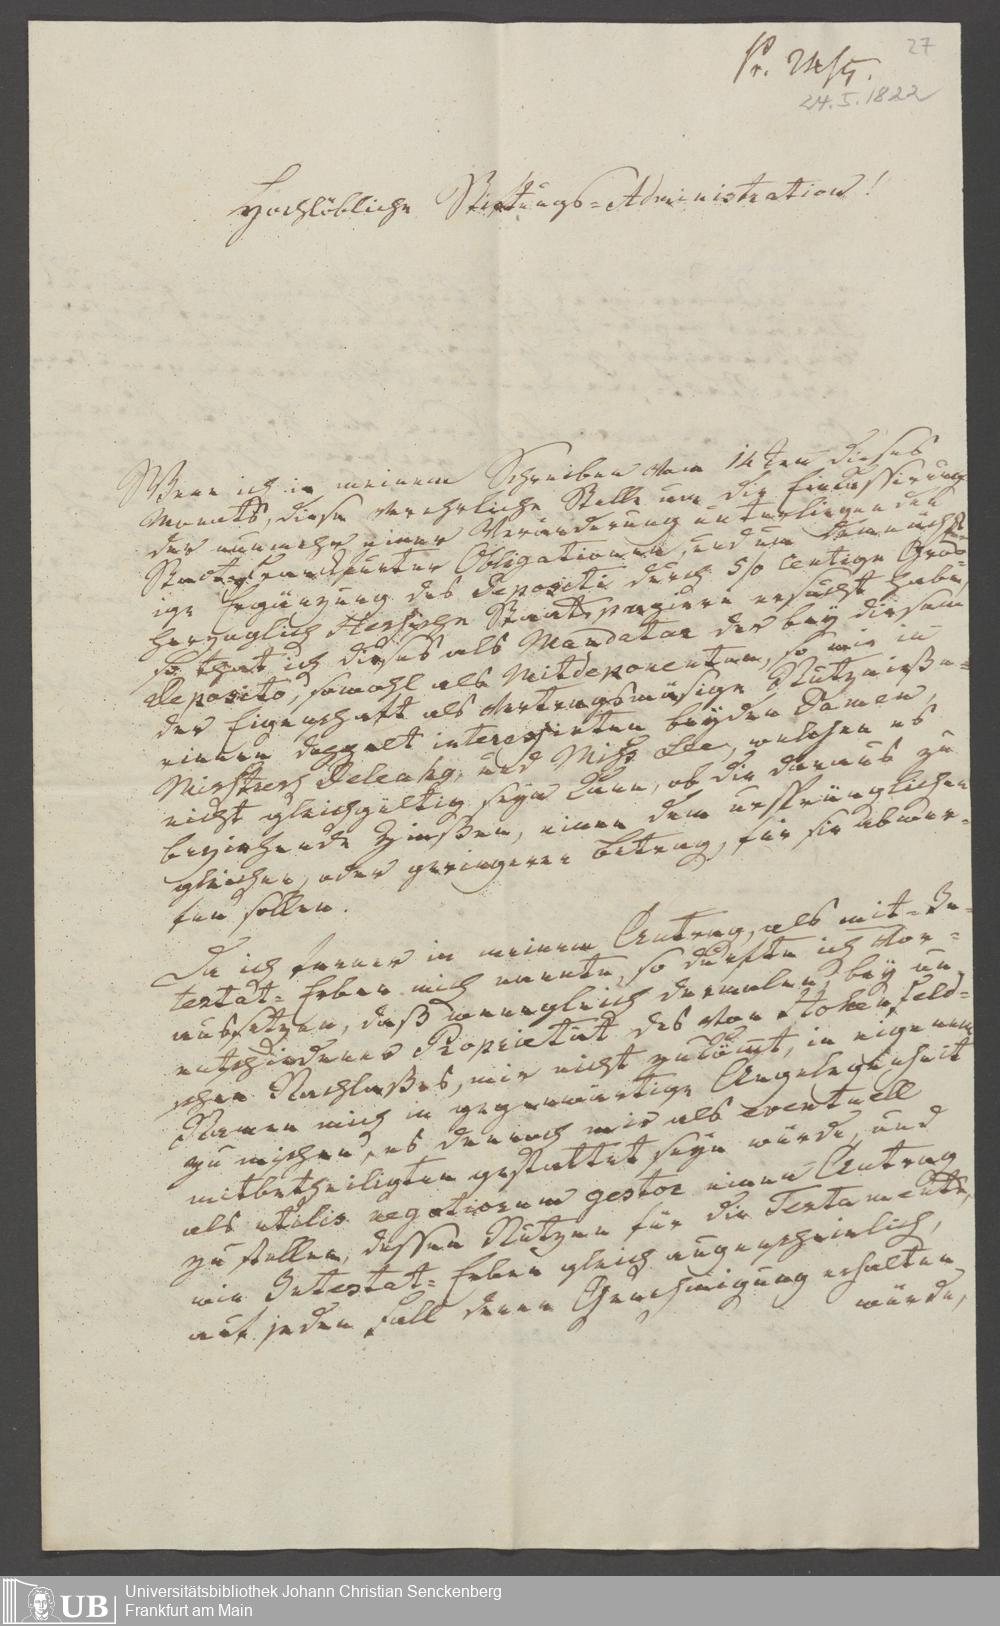 27
Pr. 24/5.
24.5.1822
Hochlöbliche Stiftungs=Administration!
Wenn ich in meinem Schreiben vom 14ten dieses
Monats, diese verehrliche Stelle um die Einkassirung
der nunmehr einer Veränderung unterliegenden
Stadt=Frankfurter Obligationen, und um demnächst
ige Ergänzung des Depositi durch 5/0 centige Gros=
herzoglich Hessische Staatspapiere ersucht habe,
so that ich dieses als Mandatar der bey diesem
Deposito, sowohl als Mitdeponenten, so wie in
der Eigenschaft als vertragsmäsige Nutznieße=
rinnen doppelt interessirten beyden Damen,
Mistress und Miss welchen es
nicht gleichgültig seyn kann, ob die daraus zu
beziehende Zinßen, einen dem ursprünglichen
gleichen, oder geringeren Betrag, für sie abwer=
fen sollen.
Da ich ferner in meinem Antrag, als mit=In=
testat=Erben mich nannte, so durfte ich vor=
aussetzen, daß wenngleich dermalen, bey un=
entschiedener Proprietät des von Hohenfeld=
schen Nachlaßes, mir nicht zukömt, in eigenem
Namen mich in gegenwärtige Angelegenheit
zu mischen, es dennoch mir als eventuell
mitbetheiligten gestattet seyn würde, und
als utilis negotiorum gestor einen Antrag
zu stellen, dessen Nutzen für die Testaments,
wie Intestat=Erben gleich augenscheinlich,
auf jeden Fall deren Genehmigung erhalten
würde,
UB
Universitätsbibliothek Johann Christian Senckenberg
Frankfurt am Main